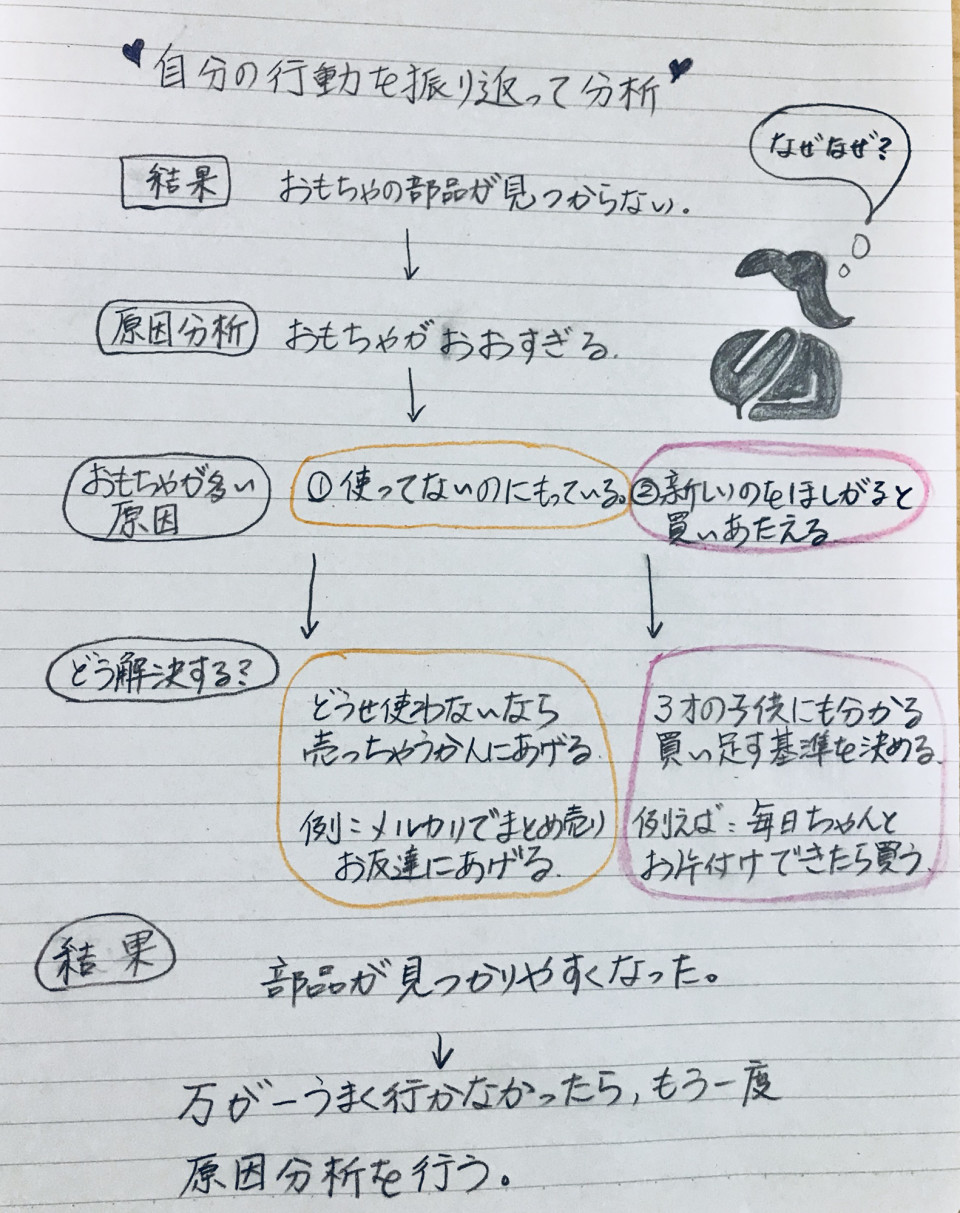 自分の行動を振り返って分析
なぜなぜ?
結果 おもちゃの部品が見つからない.
原因分析 おもちゃがおおすぎる.
おもちゃが多い
原因
①使ってないのにもっている。
②新しいのをほしがると
買いあたえる
どう解決する?
どうせ使わないなら
売っちゃうかんにあげる.
例:メルカリでまとめ売り
お友達にあげる.
3才の子供にも分かる
買い足す基準を決める.
例えば:毎日ちゃんと
お片付けできたら買う.
結果
部品が見つかりやすくなった。
万が一うまく行かなかったら,もう一度
原因分析を行う。